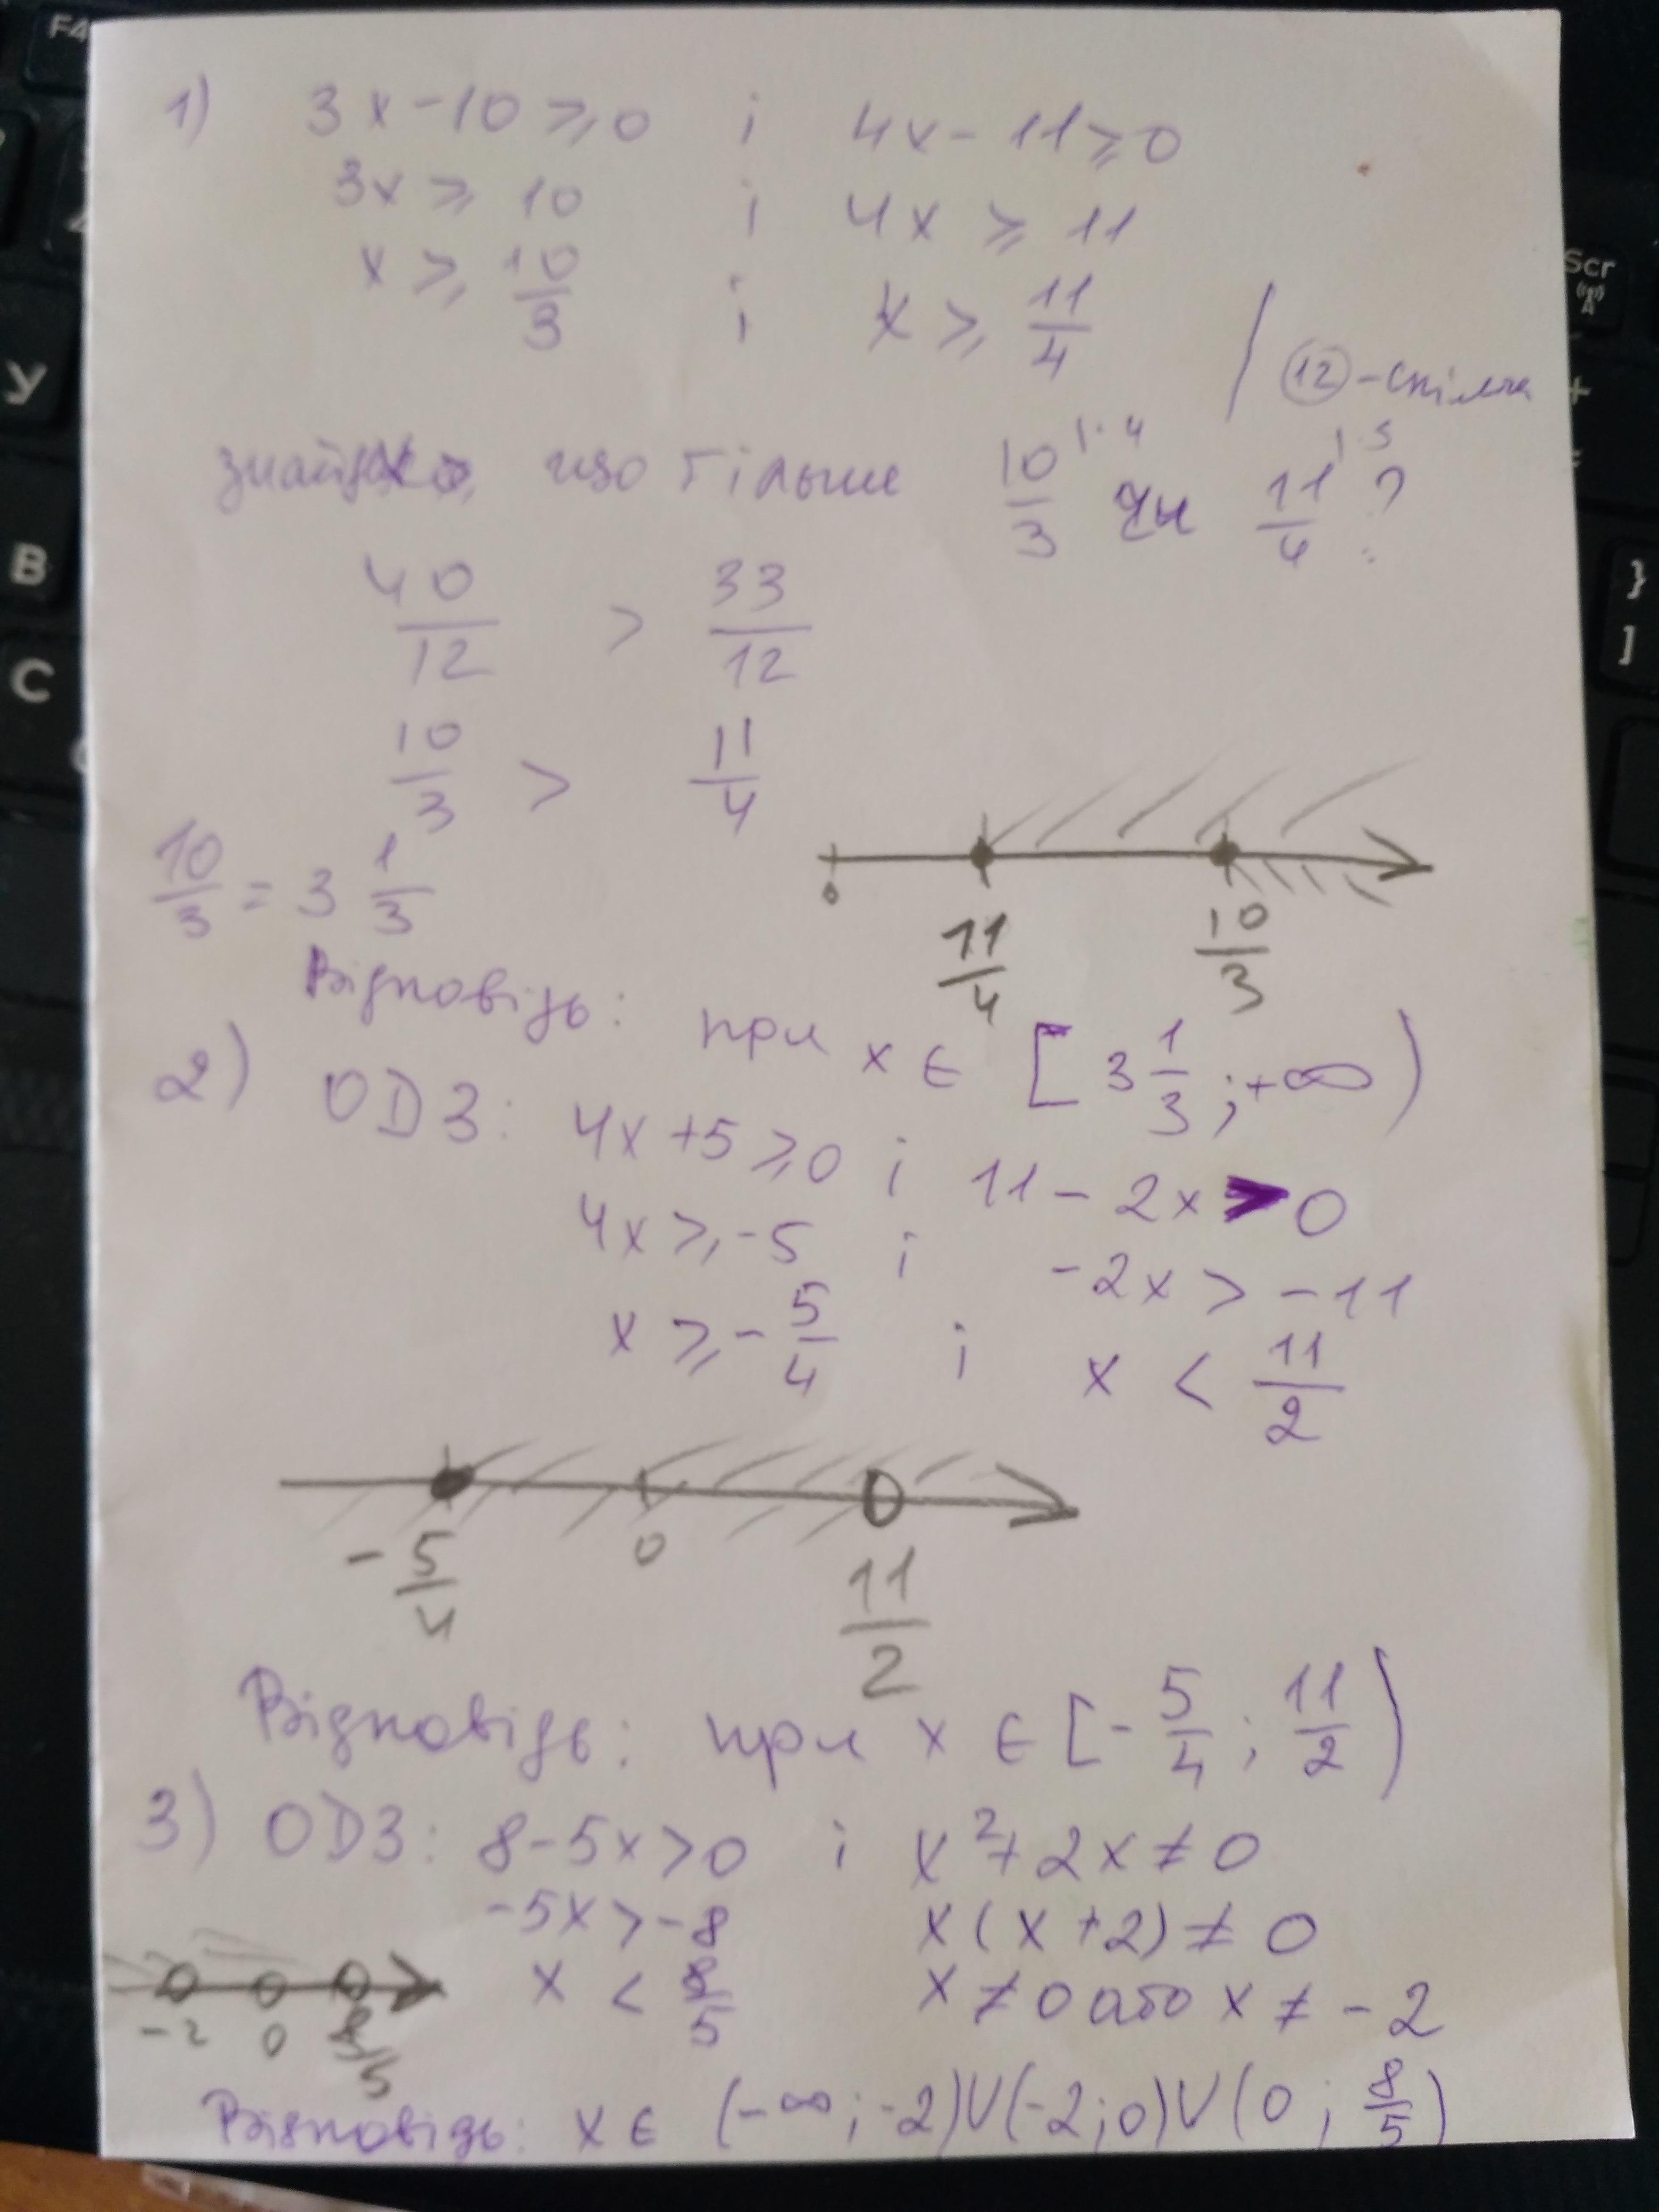 1) 3x - 10 ⩾ 0 і 4x - 11 ⩾ 0
3x ⩾ 10 і 4x ⩾ 11
x ⩾ 10/3 і x ⩾ 11/4 / 12 -
що більше 10/3 |·4 чи 11/4 |·3 ?
40/12 > 33/12
10/3 > 11/4
10/3 = 3 1/3
0 11/4 10/3
Відповідь: при x ∈ [3 1/3; +∞)
2) ОДЗ: 4x + 5 ⩾ 0 і 11 - 2x > 0
4x ⩾ -5 і -2x > -11
x ⩾ -5/4 і x < 11/2
-5/4 0 11/2
Відповідь: при x ∈ [-5/4; 11/2)
3) ОДЗ: 8 - 5x > 0 і x² + 2x ≠ 0
-5x > -8 x(x + 2) ≠ 0
x < 8/5 x ≠ 0 або x ≠ -2
-2 0 8/5
Відповідь: x ∈ (-∞; -2)∪(-2; 0)∪(0; 8/5)
F4
У
В
С
Scr
+
=
}
]